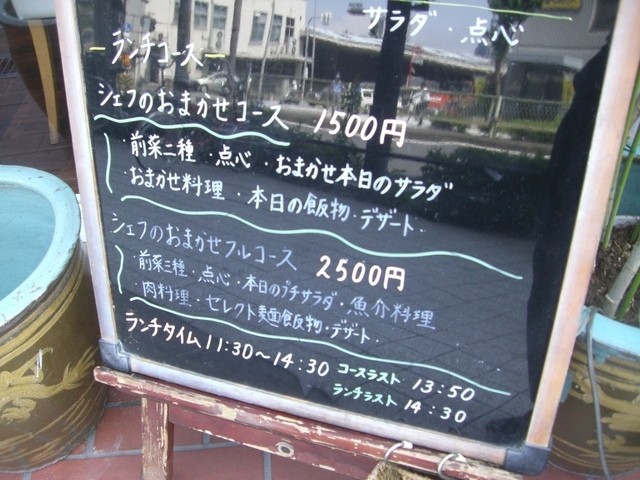 サラダ・点心
ランチコース
シェフのおまかせコース 1500円
・前菜二種・点心・おまかせ本日のサラダ
・おまかせ料理・本日の飯物・デザート
シェフのおまかせフルコース 2500円
・前菜三種・点心・本日のプチサラダ・魚介料理
・肉料理・セレクト麺飯物・デザート
ランチタイム11:30～14:30 コースラスト 13:50
ランチラスト 14:30